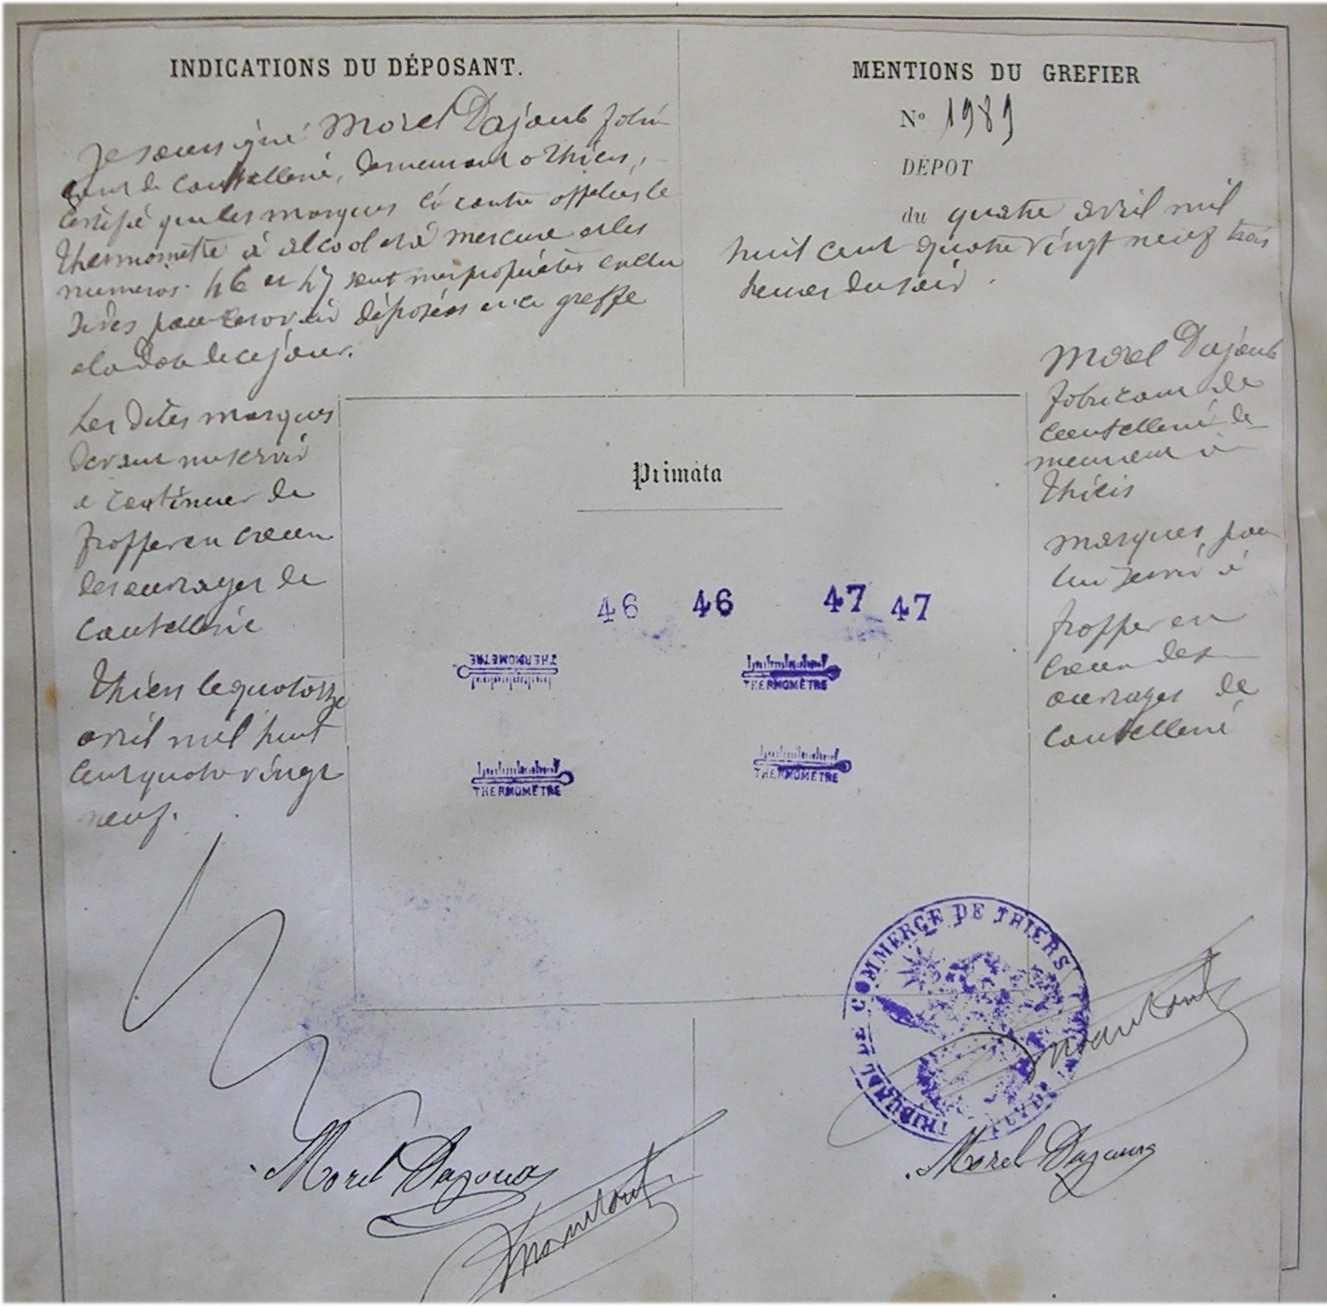 INDICATIONS DU DÉPOSANT.
Je soussigné Morel Dajoub fabri
cant de Coutellerie, demeurant a Thiers,
Certifie que les marques ci contre appelées le
thermomètre à alcool et à mercure et les
numeros 46 et 47 sont mes propriétés
déposées en ce greffe
a la date de ce jour.
Les dites marques
devant me servir
a continuer de
frapper en creux
des ouvrages de
Coutellerie
Thiers le quatorze
avril mil huit
cent quatre vingt
neuf.
MENTIONS DU GREFIER
N° 1989
DÉPOT
du quatre avril mil
huit cent quatre vingt neuf trois
heures du soir.
Morel Dajoub
fabricant de
Coutellerie de
meurant à
Thiers
marques pour
lui servir à
frapper en
creux des
ouvrages de
Coutellerie
Primata
46 46 47 47
THERMOMETRE
THERMOMÈTRE
THERMOMETRE
THERMOMETRE
TRIBUNAL DE COMMERCE DE THIERS
Morel
Morel